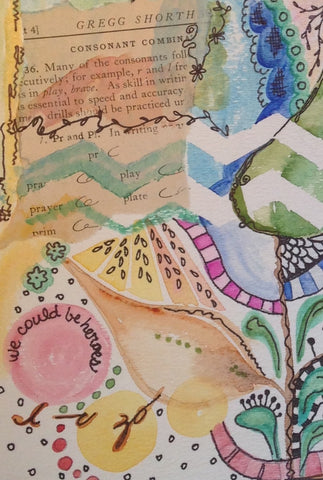 t 4]
GREGG SHORTH
CONSONANT COMBIN
36. Many of the consonants foll
ecutively; for example, r and l fre
as in play, brave. As skill in writin
is essential to speed and accuracy
drills should be practiced un
7. Pr and Pl: In writing
pr
pra
play
prayer
plate
prim
we could be heroes